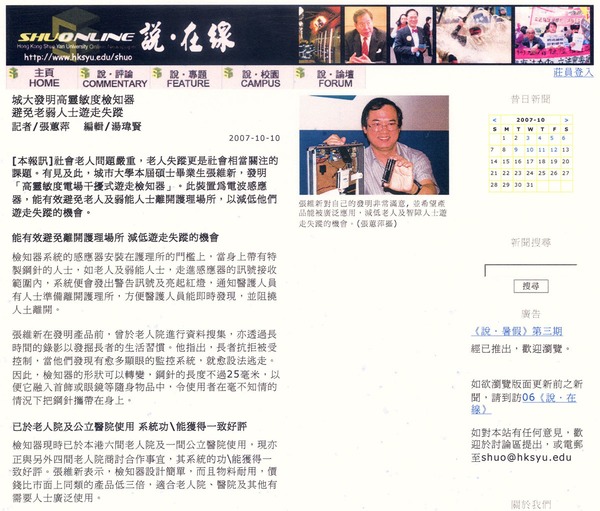 SHUONLINE 說·在線
Hong Kong Shue Yan University Online Newspaper
http://www.hksyu.edu/shuo
主頁 說·評論 說·專題 說·校園 說·論壇
HOME COMMENTARY FEATURE CAMPUS FORUM
莊員登入
城大發明高靈敏度檢知器
避免老弱人士遊走失蹤
記者/張蕙萍 編輯/湯瑋賢
2007-10-10
[本報訊]社會老人問題嚴重,老人失蹤更是社會相當關注的
課題。有見及此,城市大學本屆碩士畢業生張維新,發明
「高靈敏度電場干擾式遊走檢知器」。此裝置爲電波感應
器,能有效避免老人及弱能人士離開護理場所,以減低他們
遊走失蹤的機會。
能有效避免離開護理場所 減低遊走失蹤的機會
檢知器系統的感應器安裝在護理所的門檻上,當身上帶有特
製鋼針的人士,如老人及弱能人士,走進感應器的訊號接收
範圍內,系統便會發出警告訊號及亮起紅燈,通知醫護人員
有人士準備離開護理所,方便醫護人員能即時發現,並阻撓
人士離開。
張維新在發明產品前,曾於老人院進行資料搜集,亦透過長
時間的錄影以發掘長者的生活習慣。他指出,長者抗拒被受
控制,當他們發現有愈多顯眼的監控系統,就愈設法逃走。
因此,檢知器的形狀可以轉變,鋼針的長度不過25毫米,以
便它融入首飾或眼鏡等隨身物品中,令使用者在毫不知情的
情況下把鋼針攜帶在身上。
已於老人院及公立醫院使用 系統功\能獲得一致好評
檢知器現時已於本港六間老人院及一間公立醫院使用,現亦
正與另外四間老人院商討合作事宜,其系統的功\能獲得一
致好評。張維新表示,檢知器設計簡單,而且物料耐用,價
錢比市面上同類的產品低三倍,適合老人院、醫院及其他有
需要人士廣泛使用。
張維新對自己的發明非常滿意,並希望產
品能被廣泛應用,減低老人及智障人士遊
走失蹤的機會。(張蕙萍攝)
昔日新聞
< 2007-10 >
S M T W T F S
1 2 3 4 5 6
7 8 9 10 11 12 13
14 15 16 17 18 19 20
21 22 23 24 25 26 27
28 29 30 31
新聞搜尋
搜尋
廣告
《說．暑假》第三期
經已推出,歡迎瀏覽。
如欲瀏覽版面更新前之新
聞,請到訪06《說．在
線》
如對本站有任何意見,歡
迎於討論區提出,或電郵
至shuo@hksyu.edu
關於我們